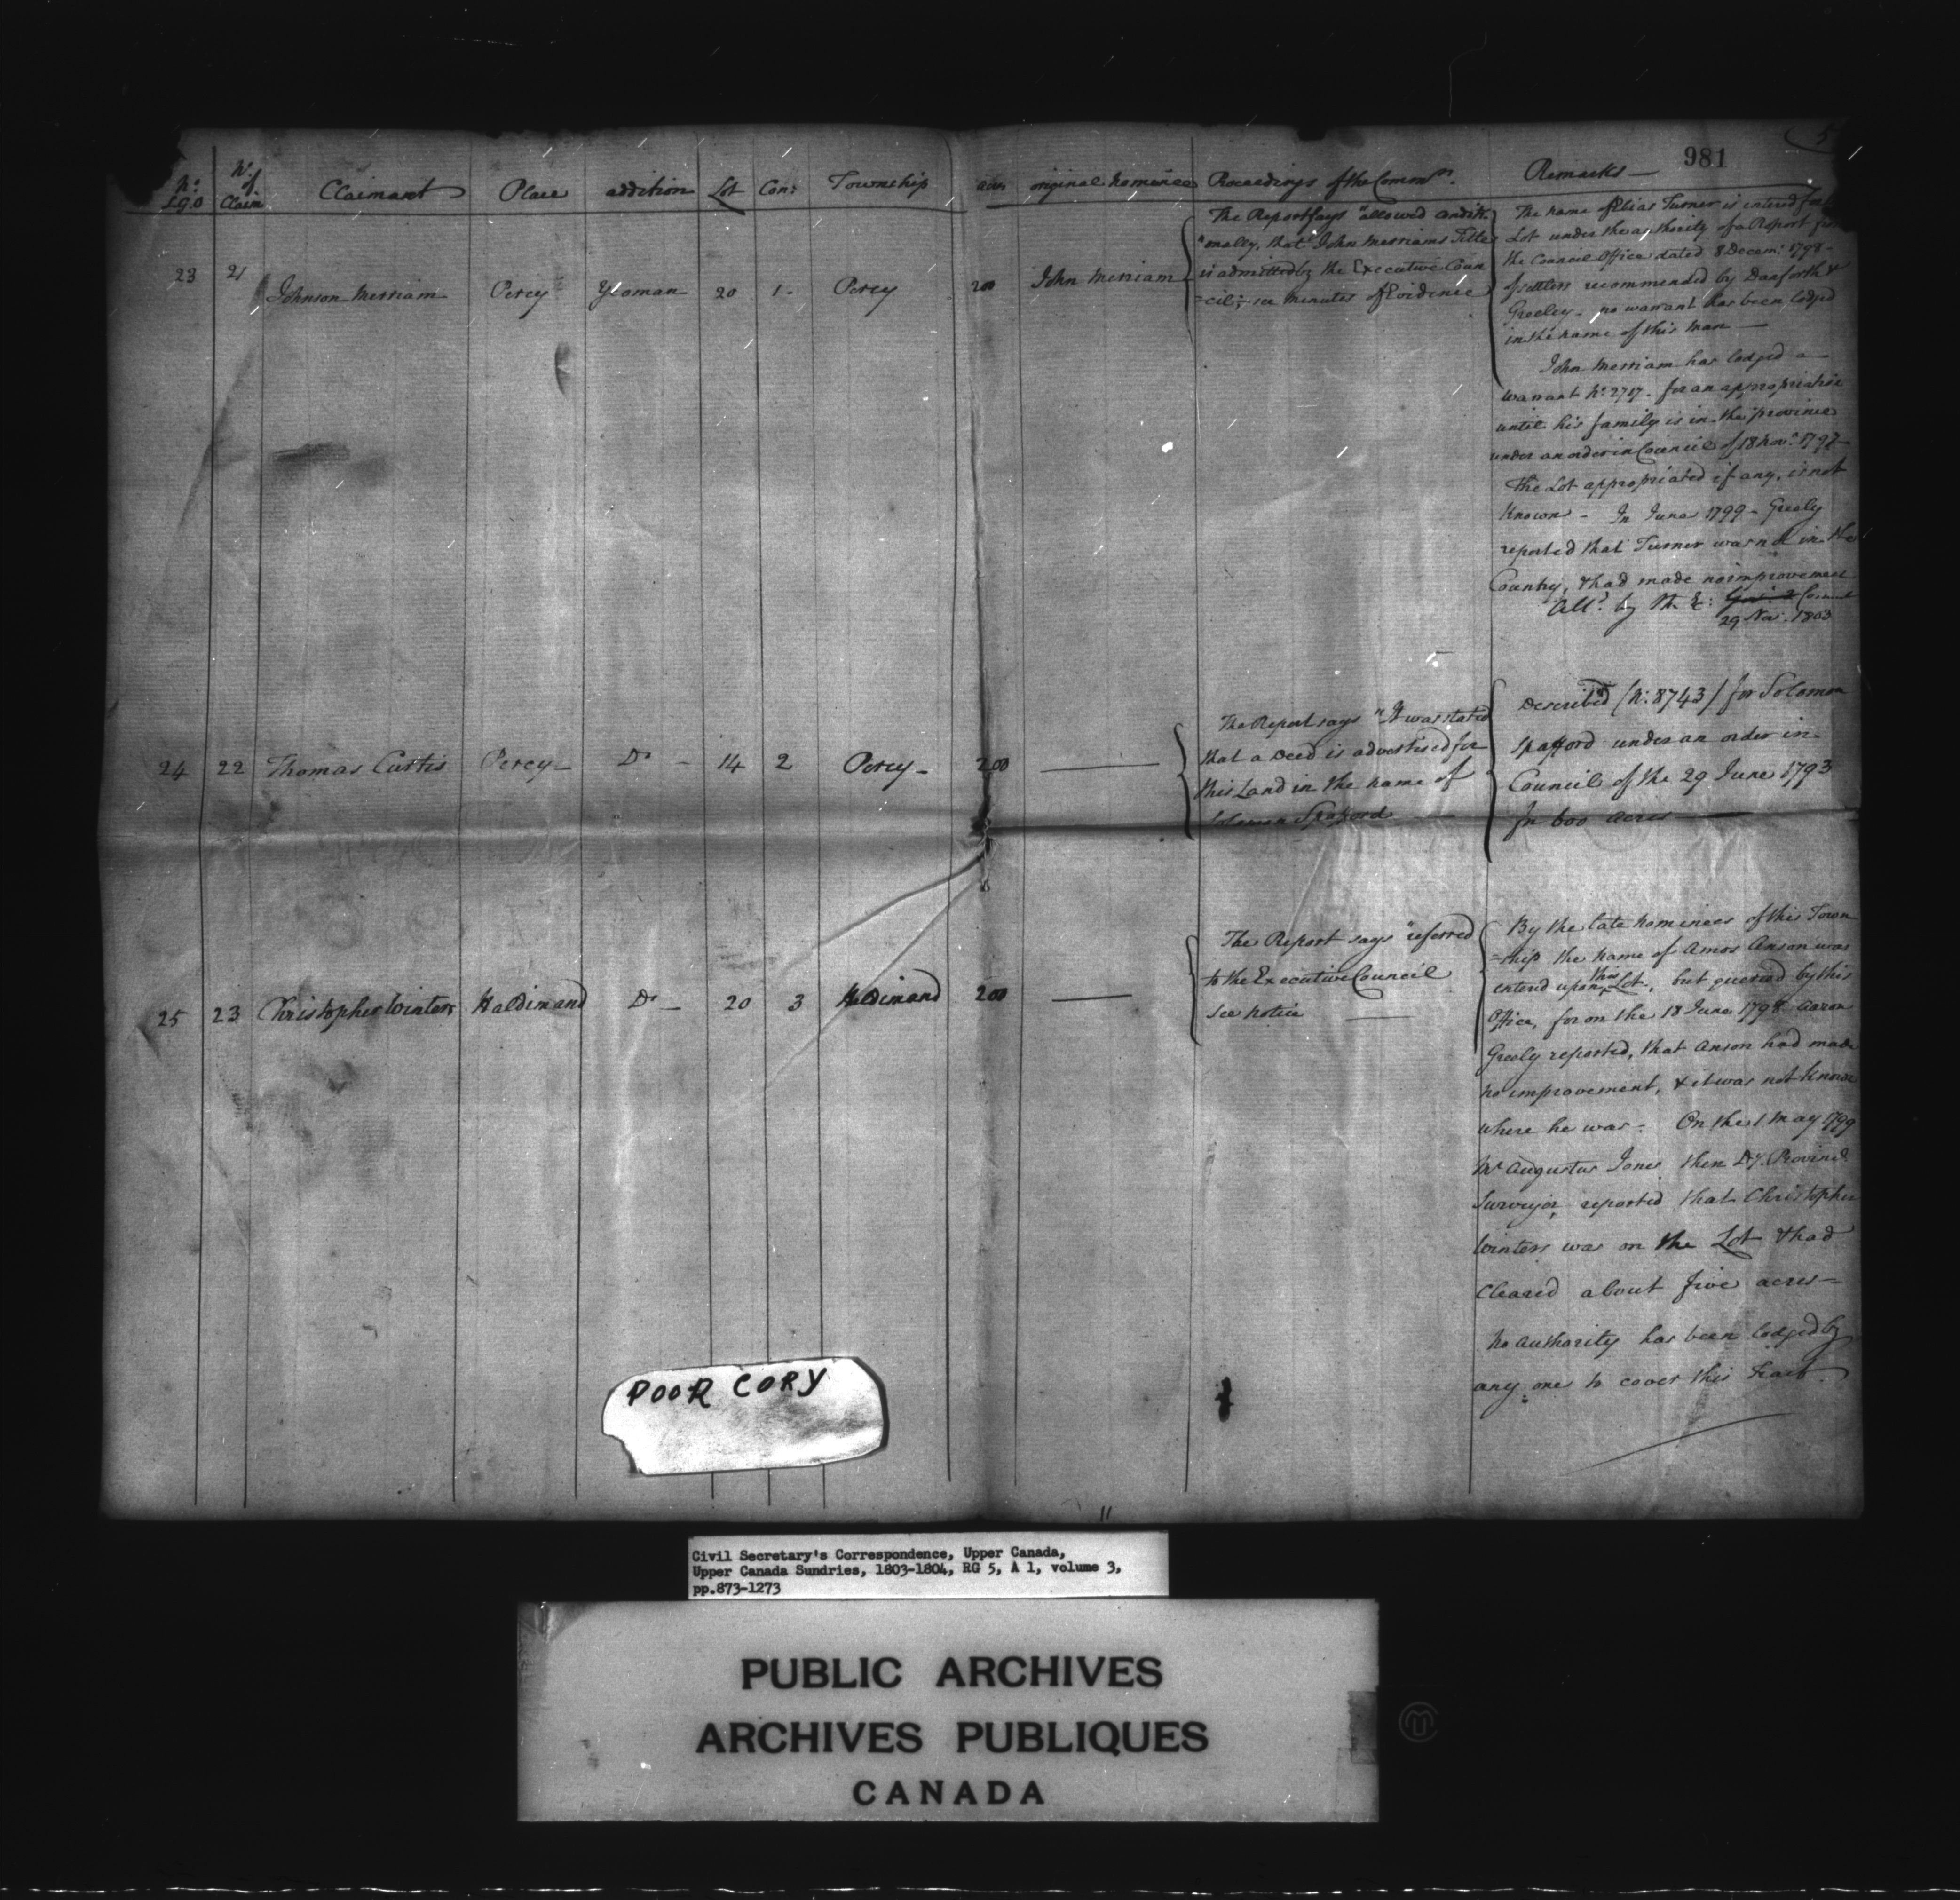 981
No. S.G.O
No. of Claim
Claimant
Place
addition
Lot
Con:
Township
acres
original nominee
Proceedings of the Commrs.
Remarks
23
21
Johnson Merriam
Percy
Yeoman
20
1
Percy
200
John Merriam
The Report says "allowed condit
"onally, that John Merriams Title
is admitted by the Executive Coun
=cil; see minutes of Evidence
The name of Elias Turner is entered for
Lot under the authority of a Report from
the Council Office dated 8 Decemr. 1798
of settlers recommended by Danforth &
Greeley - no warrant has been lodged
in the name of this man —
John Merriam has lodged a
warrant No. 2717 - for an appropriation
until his family is in the province
under an order in Council of 18 Novr. 1797
The Lot appropriated if any, is not
known - In June 1799 - Greely
reported that Turner was not in the
Country, & had made no improvement
All'd by the Ex: Council
29 Nov. 1803
24
22
Thomas Curtis
Percy
Do
14
2
Percy
200
The Report says "It was stated
that a Deed is advertised for
this Land in the name of
Solomon Spafford
Described (No. 8743) for Solomon
Spafford under an order in
Council of the 29 June 1793
for 600 acres
25
23
Christopher Winters
Haldimand
Do
20
3
Haldimand
200
The Report says "referred
to the Executive Council
see notice
By the late nominees of this Town
=ship the name of Amos Anson was
entered upon this Lot, but queried by this
Office, for on the 18 June 1798 Aaron
Greely reported, that Anson had made
no improvement, & it was not known
where he was - On the 1 May 1799
Mr Augustus Jones then Dy. Provinc.
Surveyor, reported that Christopher
Winters was on the Lot & had
cleared about five acres -
No authority has been lodged by
any one to cover this tract.
POOR COPY
11
Civil Secretary's Correspondence, Upper Canada,
Upper Canada Sundries, 1803-1804, RG 5, A 1, volume 3,
pp.873-1273
PUBLIC ARCHIVES
ARCHIVES PUBLIQUES
CANADA